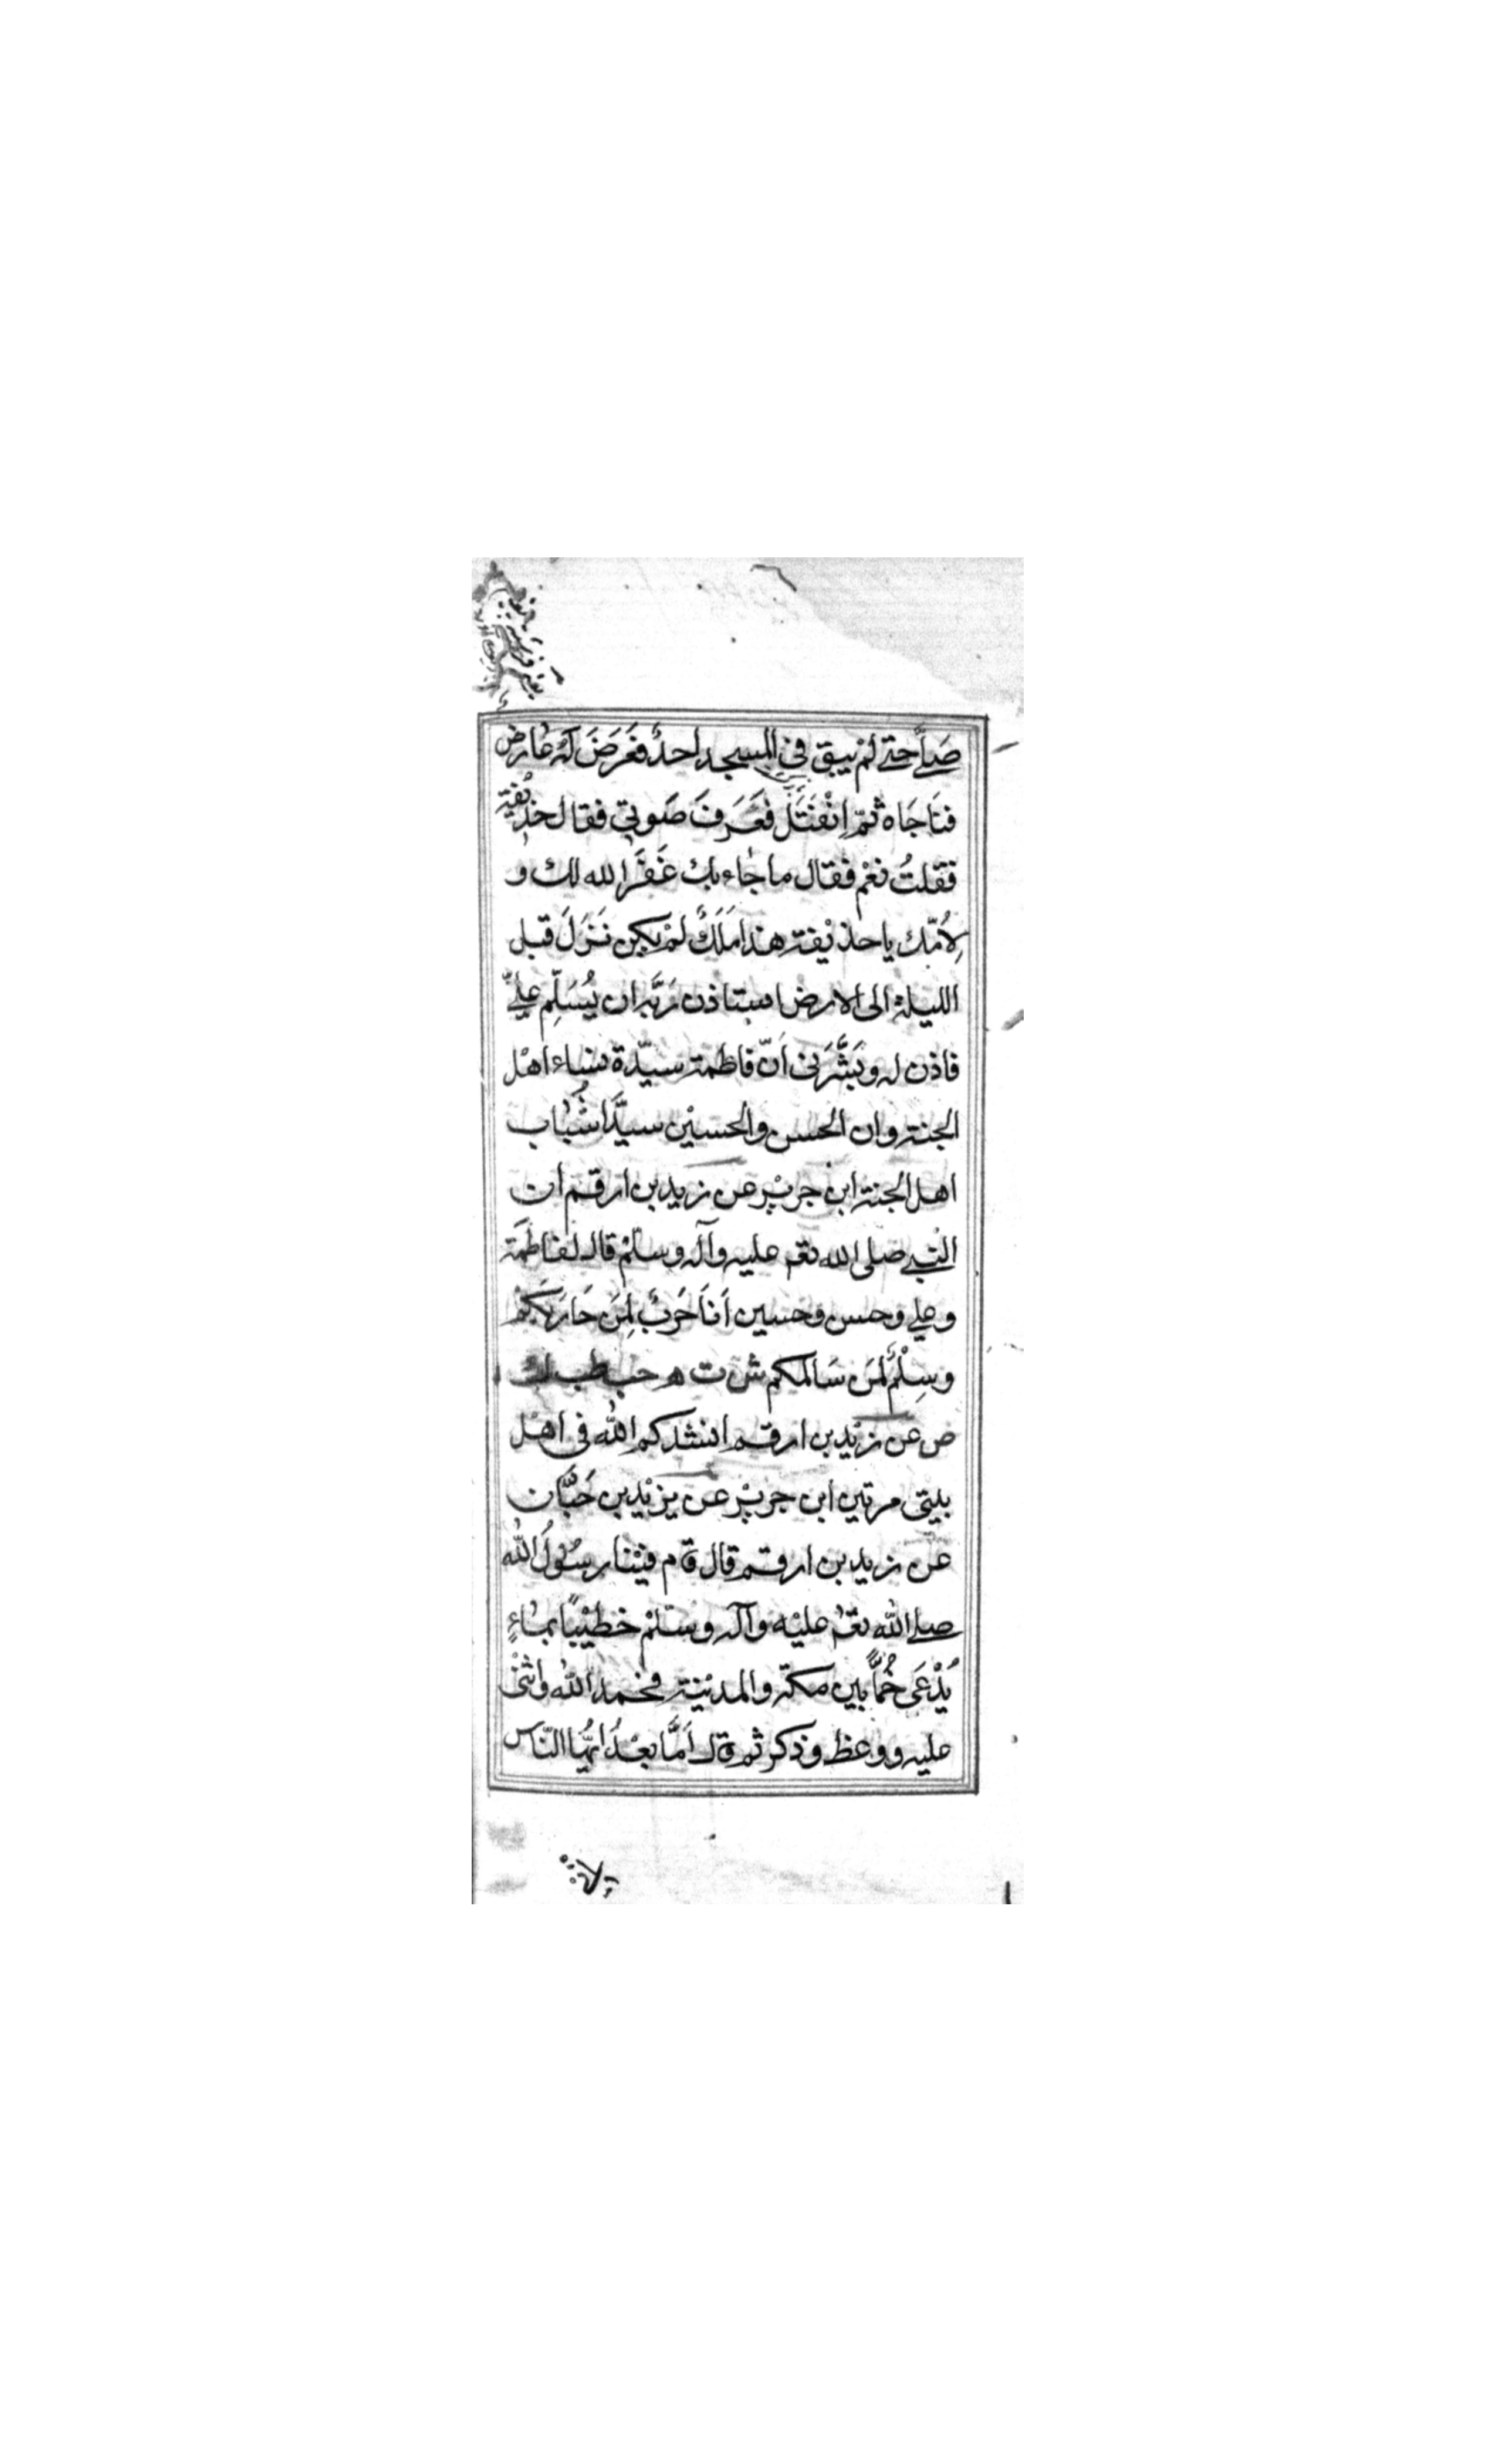 صَلّے حتے لَمْ يبق في المسجد احدٌ فَعَرَضَ لَهُ عَارِض
فنَاجَاه ثمّ اِنْفَتَل فَعَرَفَ صَوتي فقال حذيفة
فقلتُ نعْم فقال ما جاء بك غَفَرَ الله لك و
لِاُمّك يا حذيْفة هذا مَلَكٌ لَمْ يكن نَزَلَ قبل
الليلة الى الارض استاذن رَبَّه ان يُسَلِّم عليّ
فاذن له و بَشَّرَني اَنّ فاطمة سيّدة نساء اهْل
الجنة وان الحسن والحسيْن سيدَّا شُبَاب
اهل الجنة ابن جريْر عن زيد بن ارقم ان
النبي صلى الله تعم عليه وآله وسلّمْ قال لفاطمَة
و علي وحسن وحسين اَنَا حَربٌ لِمَن حَارَبَكم
وسِلْمٌ لمَن سَالمكم ش ت ه حب طب ك
ص عن زيْد بن ارقم انشدكم الله في اهْل
بيتي مرتين ابن جريْر عن يزيْد بن حَبَّان
عن زيد بن ارقم قال قام فيْنا رسُوْلُ الله
صلے الله تعم عليْه وآله وسلّمْ خطيْبًا بمَاءٍ
يُدْعَى خُمًّا بين مكة والمديْنة فحمد الله واثنٰى
عليه و وعظ وذكر ثم قال اَمّا بعْدُ ايُّهَا النّاس